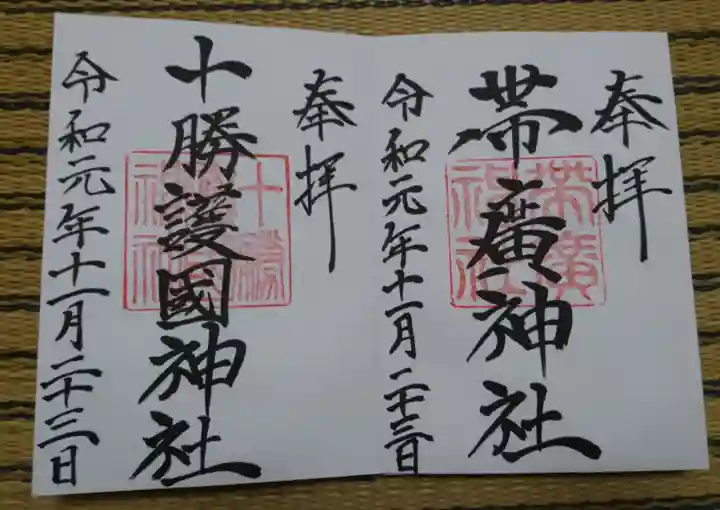 奉拝
帯廣神社
帯廣神社
令和元年十一月二十三日
奉拝
十勝護國神社
令和元年十一月二十三日